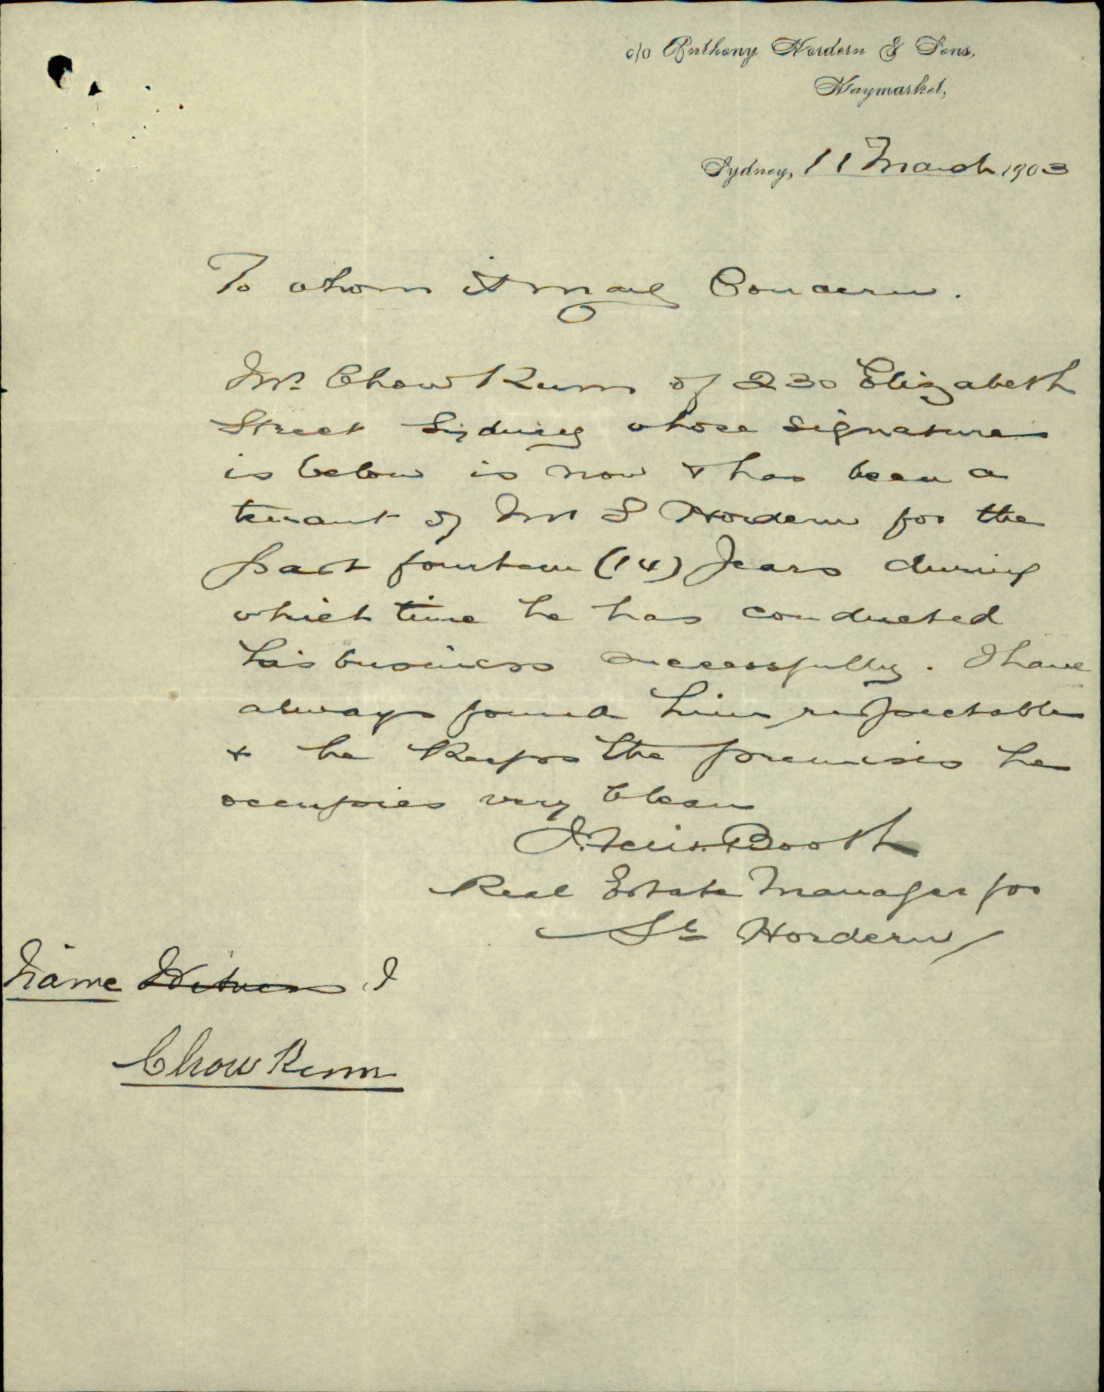 c/o Anthony Hordern & Sons,
Haymarket,
Sydney, 11 March 1903
To whom it may Concern.
Mr. Chow Kum of 230 Elizabeth
Street Sydney whose signature
is below is now & has been a
tenant of Mr S Hordern for the
past fourteen (14) years during
which time he has conducted
his business successfully. I have
always found him respectable
& he keeps the premises he
occupies very clean
Booth
Real Estate Manager for
Sl Hordern
Name Witness
Chow Kum